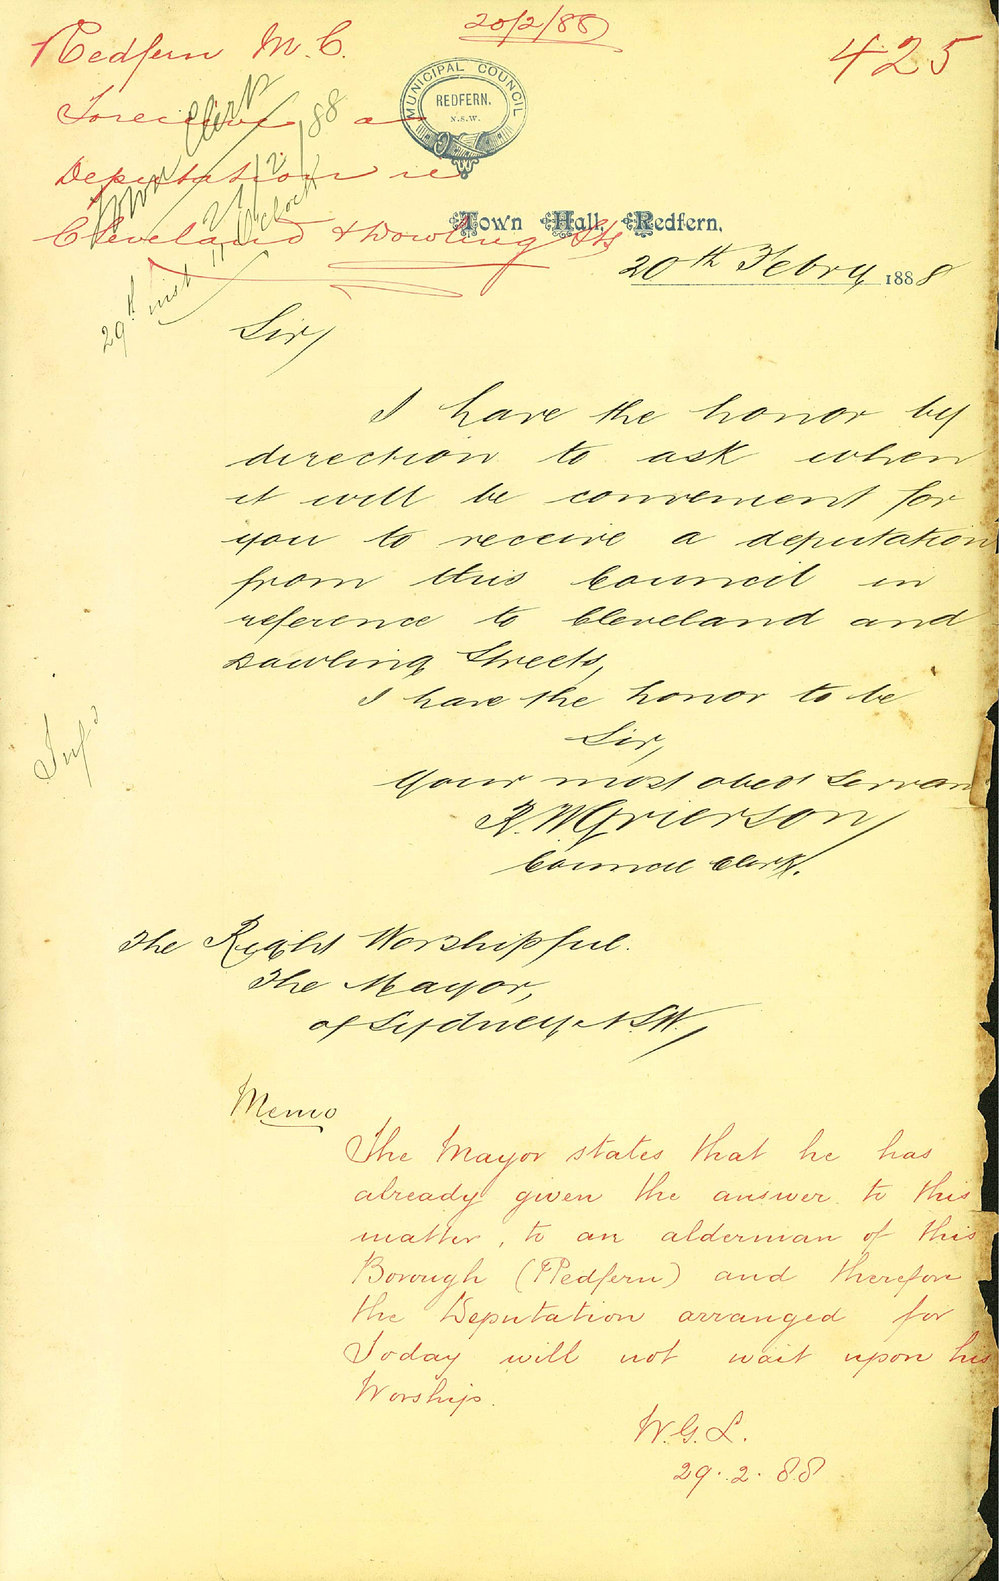 20/2/88
425
Redfern M.C.
To receive a
Deputation re
Cleveland & Dowling Sts
Town Clerk
21/2/88
29th inst 11 O'clock
MUNICIPAL COUNCIL
REDFERN.
N.S.W.
Town Hall, Redfern,
20th Febry 1888
Sir,
I have the honor by
direction to ask when
it will be convenient for
you to receive a deputation
from this Council in
reference to Cleveland and
Dowling Streets,
I have the honor to be
Sir,
Your most obedt Servan
R. W Grierson,
Council Clerk.
Infd
The Right Worshipful.
The Mayor,
of Sydney N.S.W.,
Memo
The Mayor states that he has
already given the answer to this
matter, to an alderman of this
Borough (Redfern) and therefore
the Deputation arranged for
Today will not wait upon his
Worship.
W.G.L.
29.2.88